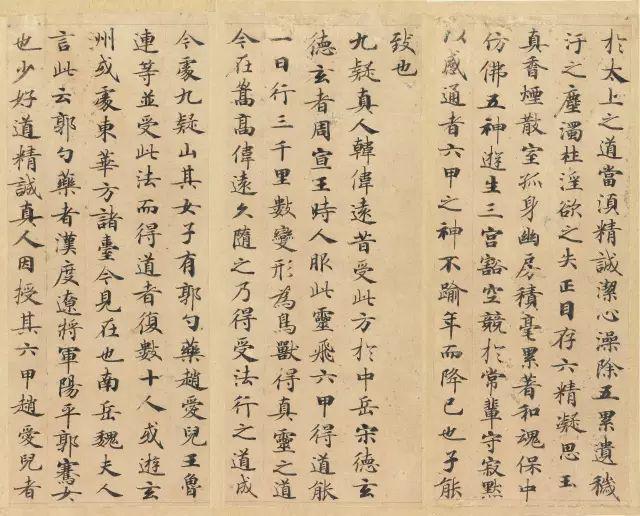 於太上之道當湏精誠潔心澡除五累遺穢
汙之塵濁杜淫欲之失正目存六精凝思玉
真香煙散室孤身幽房積毫累著和魂保中
仿佛五神遊生三宮豁空競於常輩守寂默
以感通者六甲之神不踰年而降己也子能
致也
九疑真人韓偉遠昔受此方於中岳宋德玄
德玄者周宣王時人服此靈飛六甲得道能
一日行三千里數變形為鳥獸得真靈之道
今在嵩高偉遠久隨之乃得受法行之道成
今處九疑山其女子有郭勺藥趙愛兒王魯
連等並受此法而得道者復數十人或遊玄
州或處東華方諸臺今見在也南岳魏夫人
言此云郭勺藥者漢度遼將軍陽平郭騫女
也少好道精誠真人因授其六甲趙愛兒者